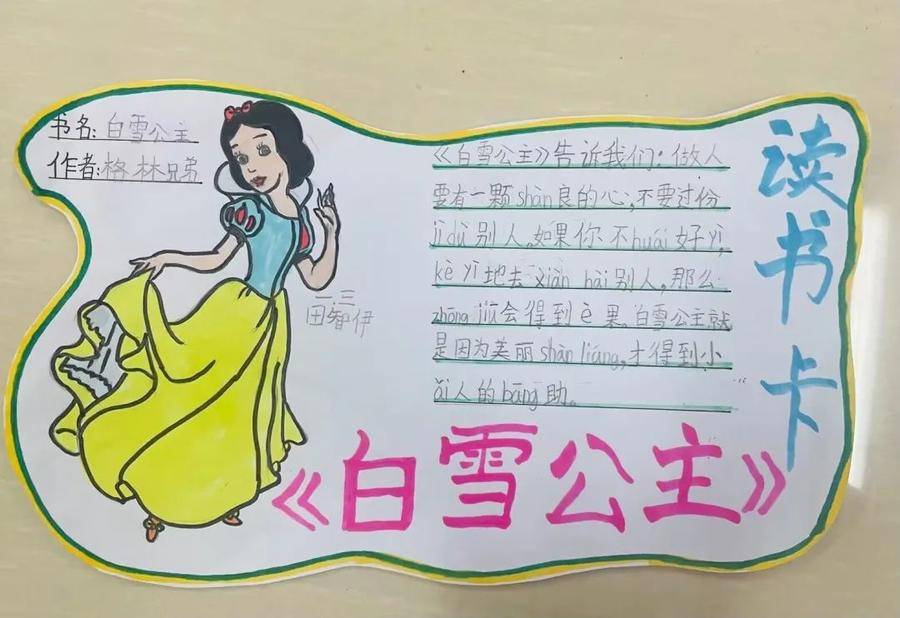 书名:白雪公主
作者:格林兄弟
《白雪公主》告诉我们:做人
要有一颗shàn良的心,不要过份
jí dù别人。如果你不huái好yì,
kè yì地去xiàn hài别人,那么
zhōng jiū会得到è果。白雪公主就
是因为美丽shàn liáng,才得到小
ǎi人的bāng助。
二.三
田智伊
读书卡
《白雪公主》